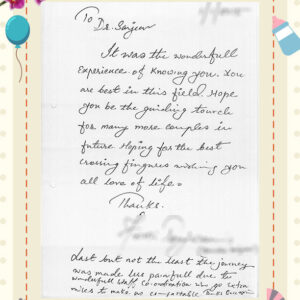 To Dr. Sanjeev
It was the wonderfull
Experience of Knowing you. You
are best in this field. Hope
you be the guiding tourch
for many more couples in
future Hoping for the best
crossing fingures wishing you
all love of life.
Thanks.
Last but not the least the journey
was made less painfull due to
wonderfull staff co-ordination who go extra
miles to make us comfortable